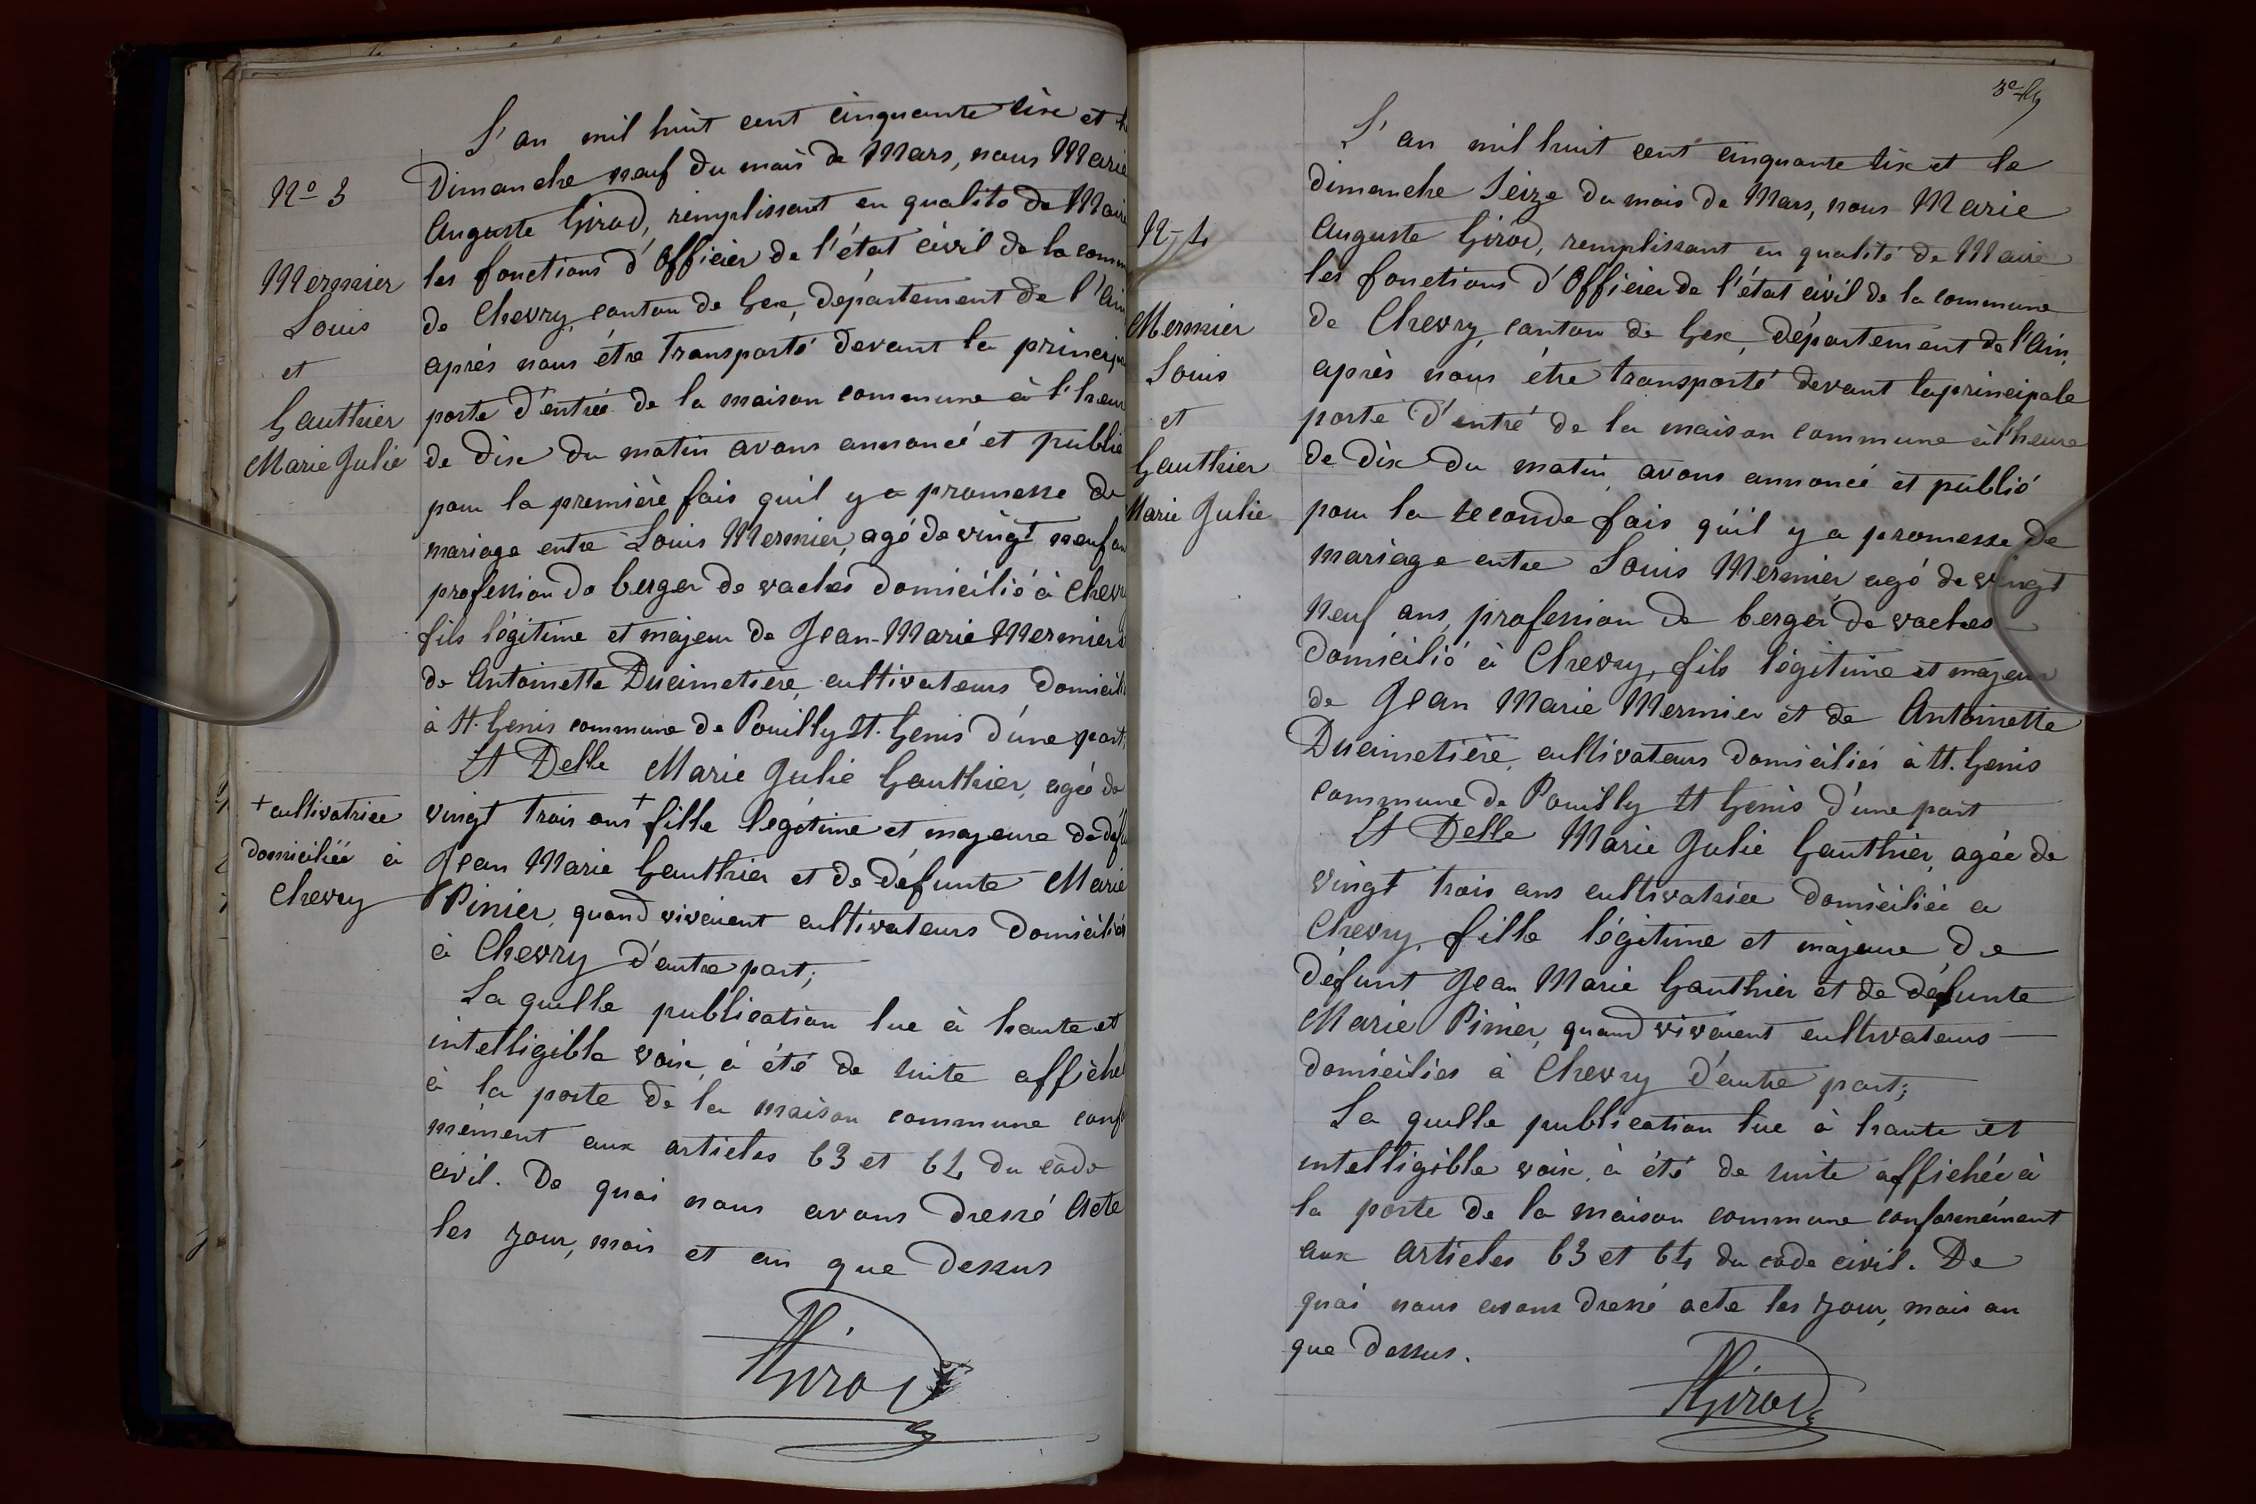 L'an mil huit cent cinquante six et
N° 3
Dimanche neuf du mois de Mars, nous Marie
Auguste Girod, remplissant en qualité de Maire
Mermier
Louis
et
Gauthier
Marie Julie
les fonctions d'Officier de l'état civil de la comm
de Chevry, canton de Gex, département de l'Ain
après nous être transporté devant la princip
porte d'entrée de la maison commune à l'heur
de dix du matin avons annoncé et publié
pour la première fois quil y a promesse de
mariage entre Louis Mermier, agé de vingt neuf an
profession de berger de vaches domicilié à Chevry
fils légitime et majeur de Jean-Marie Mermier
de Antoinette Ducimetière, cultivateurs domicili
à St. Genis commune de Pouilly St. Genis d'une part;
Et Delle Marie Julie Gauthier, agée de
vingt trois ans + fille légitime et majeure de déf
+ cultivatrice
domiciliée à
Chevry
Jean Marie Gauthier et de défunte Marie
Pinier, quand vivaient cultivateurs domiciliés
à Chevry d'autre part;
La quelle publication lue à haute et
intelligible voix, à été de suite affiché
à la porte de la maison commune conf
mément aux articles 63 et 64 du code
civil. De quoi nous avons dressé Acte
les jour, mois et an que dessus
Girod
L'an mil huit cent cinquante six et le
N° 4
dimanche seize du mois de Mars, nous Marie
Auguste Girod, remplissant en qualité de Maire
les fonctions d'Officier de l'état civil de la commune
Mermier
Louis
et
Gauthier
Marie Julie
de Chevry, canton de Gex, département de l'Ain,
après nous être transporté devant la principale
porte d'entré de la maison commune à l'heure
de dix du matin, avons annoncé et publié
pour la seconde fois qu'il y a promesse de
mariage entre Louis Mermier agé de vingt
neuf ans, profession de berger de vaches
domicilié à Chevry, fils légitime et majeur
de Jean Marie Mermier et de Antoinette
Ducimetière, cultivateurs domiciliés à St. Genis
commune de Pouilly St Genis d'une part
Et Delle Marie Julie Gauthier, agée de
vingt trois ans cultivatrice domiciliée a
Chevry, fille légitime et majeure de
défunt Jean Marie Gauthier et de défunte
Marie Pinier, quand vivaient cultivateurs
domiciliés à Chevry d'autre part;
La quelle publication lue à haute et
intelligible voix, à été de suite affichée à
la porte de la maison commune conformément
aux articles 63 et 64 du code civil. De
quoi nous avons dressé acte les jour, mois an
que dessus.
Girod